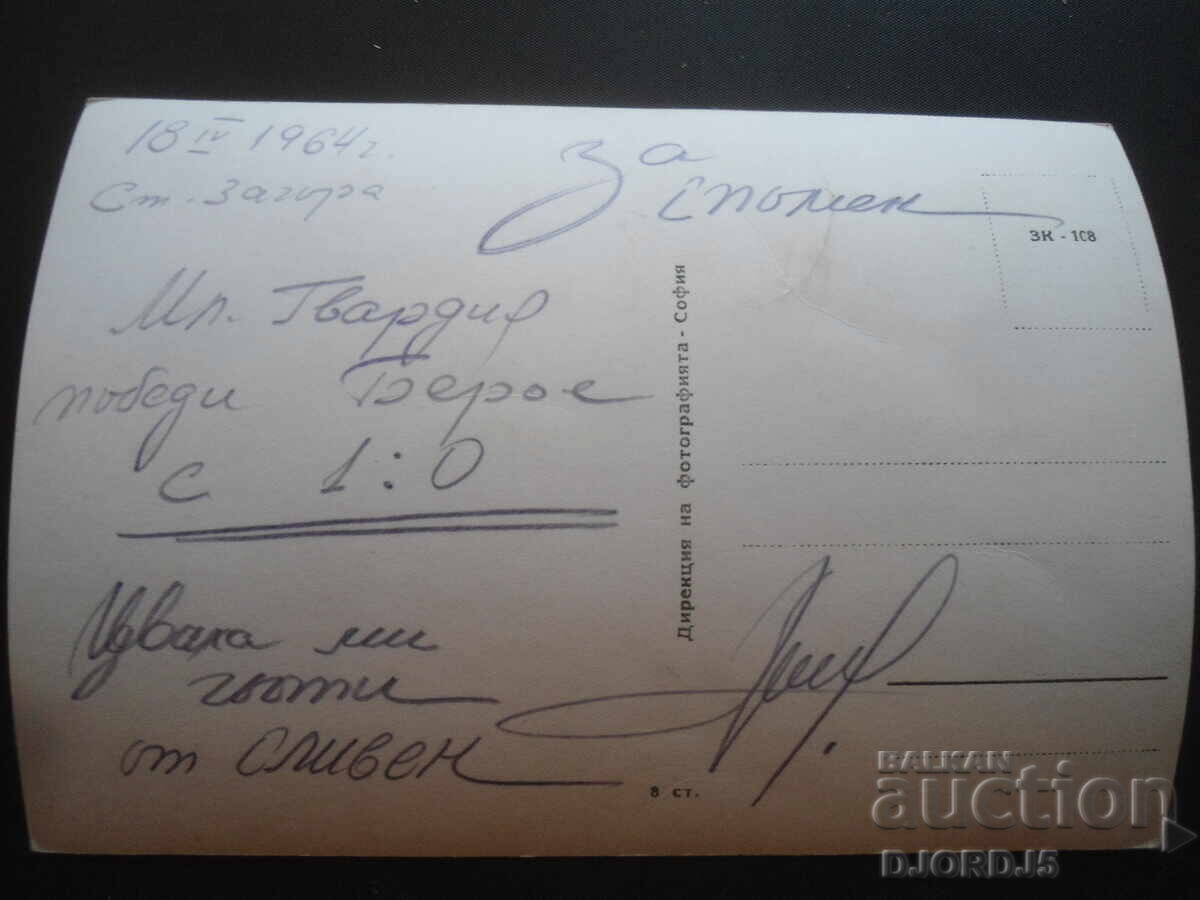 18 IV 1964 г.
Ст. Загора
За
спомен
Мл. Гвардия
победи Берое
с 1:0
Идваха ми
гости
от Сливен
Дирекция на фотографията - София
ЗК - 108
8 ст.
BALKAN
auction
DJORDJ5